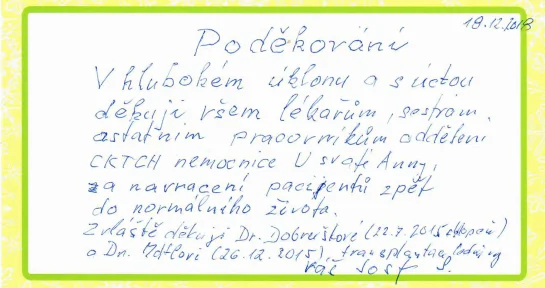 18.12.2018
Poděkování
V hlubokém úklonu a s úctou
děkuji všem lékařům, sestrám,
ostatním pracovníkům oddělení
CKTCH nemocnice U svaté Anny,
za navracení pacijentů zpět
do normálního života.
Zvláště děkuji Dr. Dobruškové (22.7.2015
a Dr. (26.12.2015), transplantace
váš Josef S.